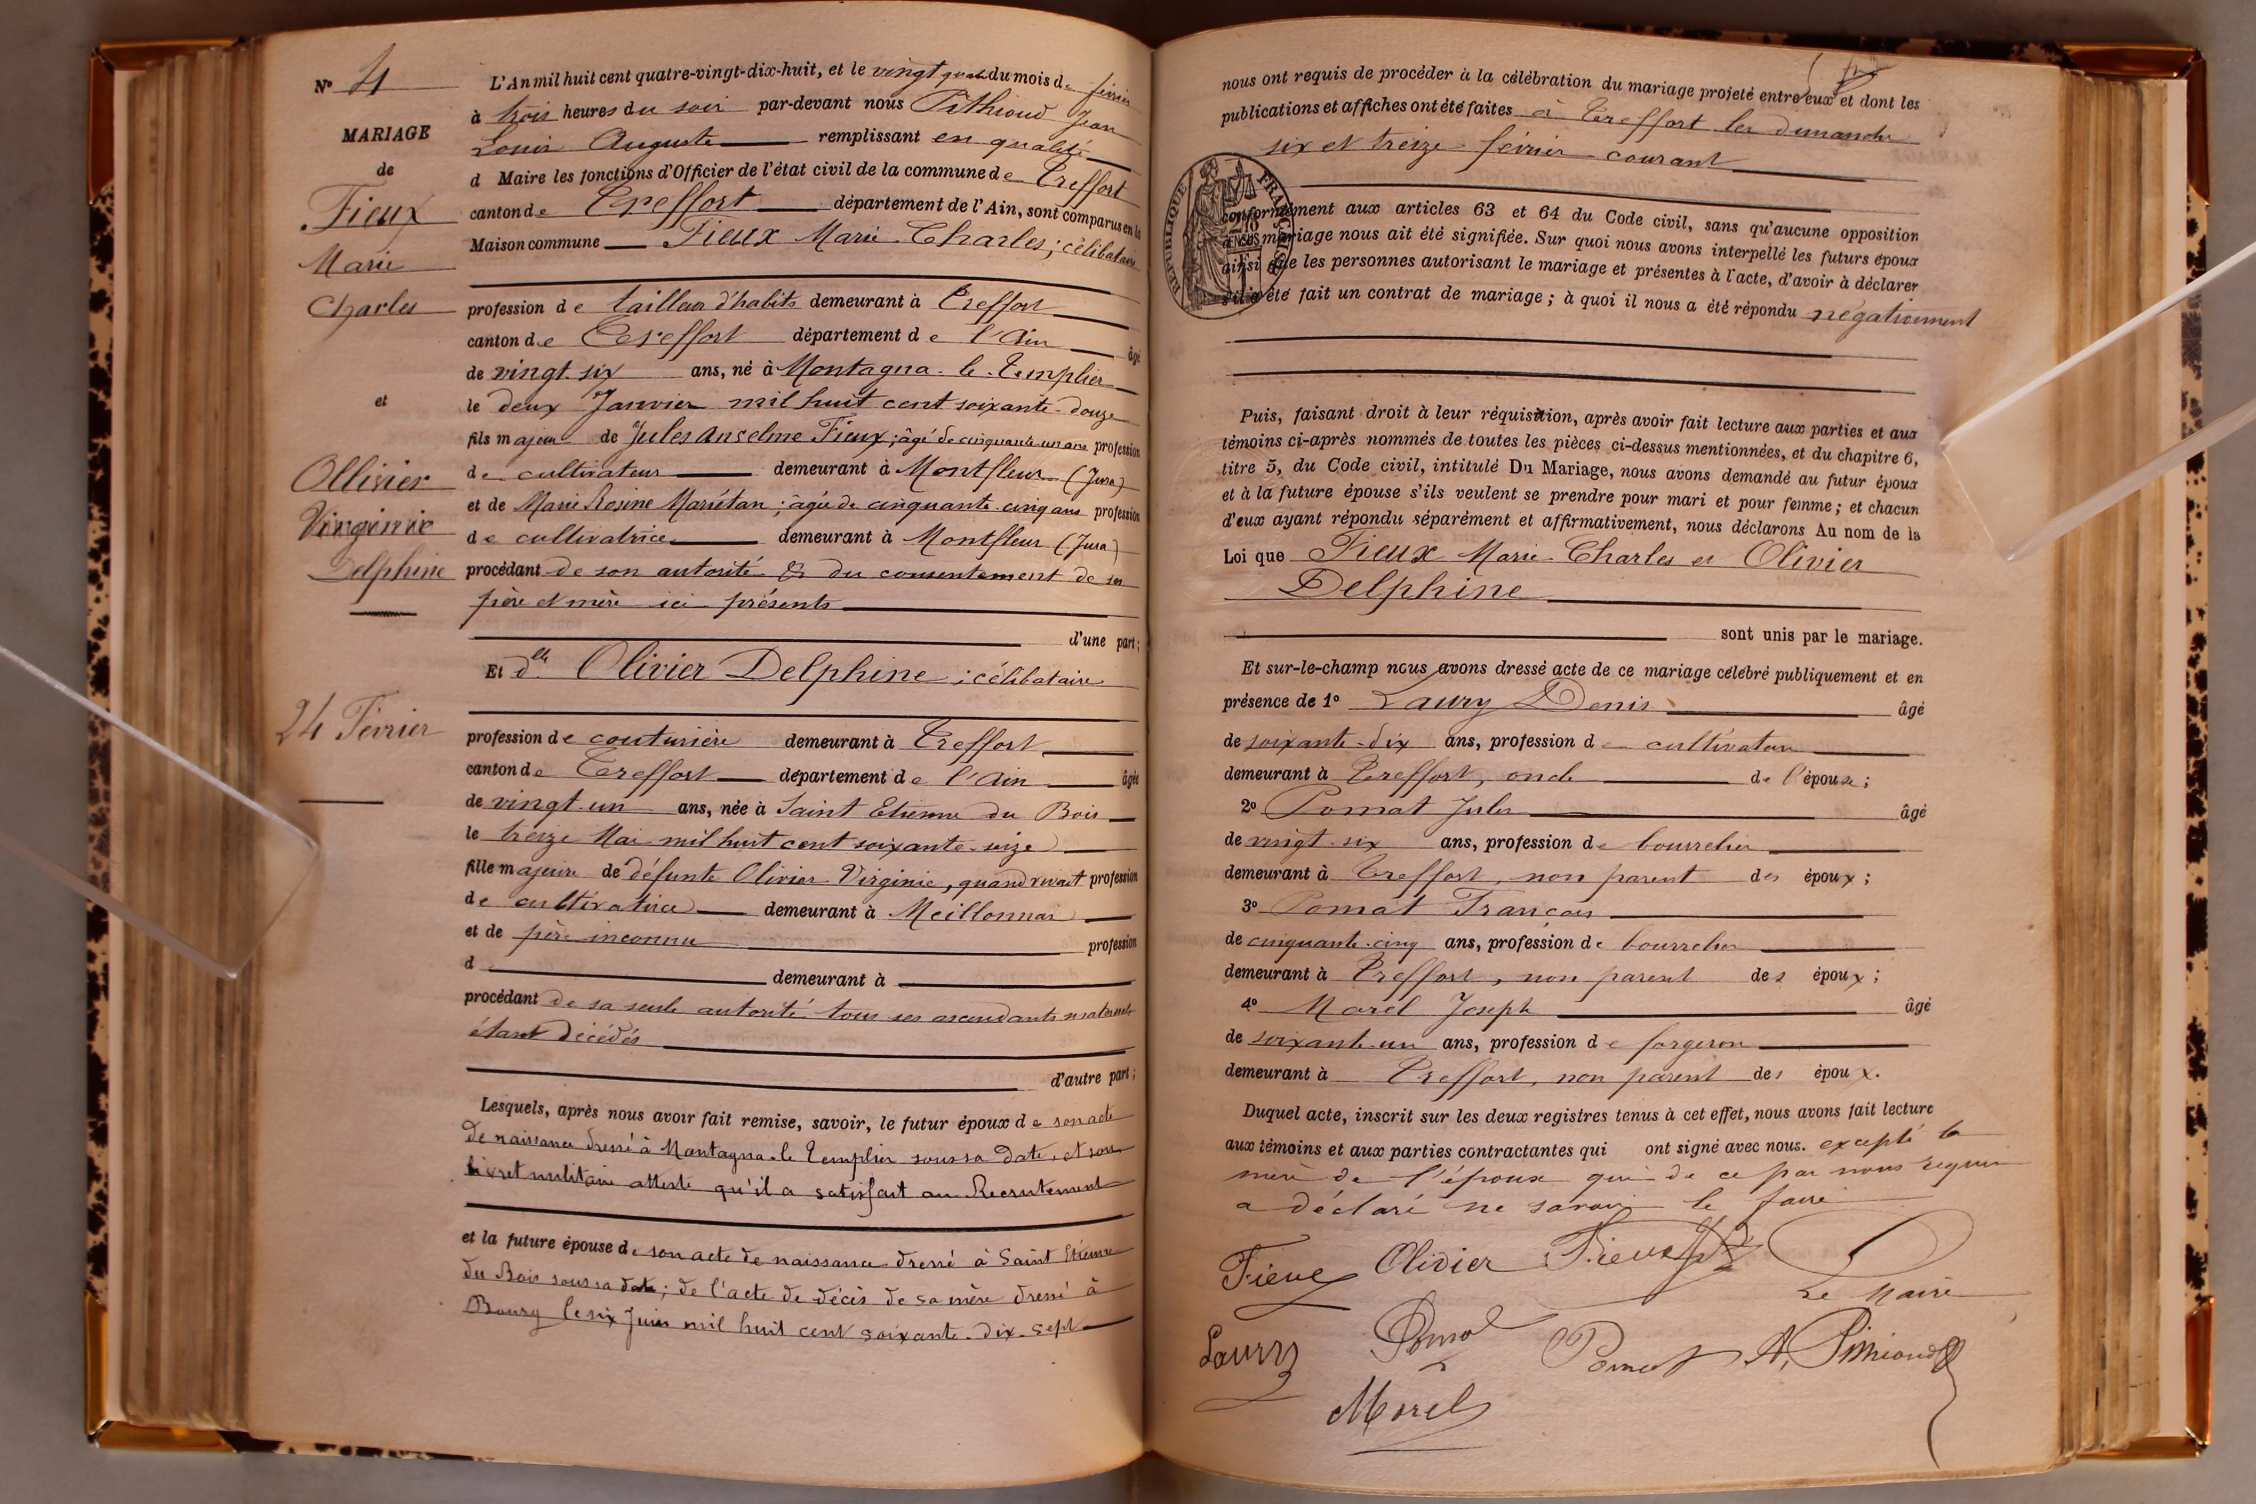 Nº 4
MARIAGE
de
Fieux
Marie
Charles
et
Ollivier
Virginie
Delphine
24 Février
L'An mil huit cent quatre-vingt-dix-huit, et le vingt quatre du mois de février
à trois heures du soir par-devant nous Pithioud Jean
Louis Auguste remplissant en qualité
d Maire les fonctions d'Officier de l'état civil de la commune de Treffort
canton de Treffort département de l'Ain, sont comparus en la
Maison commune Fieux Marie Charles; célibataire
profession de tailleur d'habits demeurant à Treffort
canton de Treffort département de l'Ain âgé
de vingt-six ans, né à Montagna-le-Templier
le deux Janvier mil huit cent soixante-douze
fils majeur de Jules Anselme Fieux; âgé de cinquante un ans profession
de cultivateur demeurant à Montfleur (Jura)
et de Marie Rosine Mariétan; âgée de cinquante-cinq ans profession
de cultivatrice demeurant à Montfleur (Jura)
procédant de son autorité & du consentement de ses
père et mère ici présents
d'une part;
Et dlle Olivier Delphine; célibataire
profession de couturière demeurant à Treffort
canton de Treffort département de l'Ain âgée
de vingt-un ans, née à Saint Etienne du Bois
le treize Mai mil huit cent soixante-seize
fille majeure de défunte Olivier Virginie, quand vivait profession
de cultivatrice demeurant à Meillonnas
et de père inconnu profession
d demeurant à
procédant de sa seule autorité tous ses ascendants maternels
étant décédés
d'autre part;
Lesquels, après nous avoir fait remise, savoir, le futur époux de son acte
de naissance dressé à Montagna-le Templier sous sa date, et son
livret militaire atteste qu'il a satisfait au Recrutement
et la future épouse de son acte de naissance dressé à Saint Etienne
du Bois sous sa date; de l'acte de décès de sa mère dressé à
Bourg le six Juin mil huit cent soixante-dix-sept
nous ont requis de procéder à la célébration du mariage projeté entre eux et dont les
publications et affiches ont été faites à Treffort les dimanches
six et treize février courant
RÉPUBLIQUE FRANÇAISE
conformément aux articles 63 et 64 du Code civil, sans qu'aucune opposition
au mariage nous ait été signifiée. Sur quoi nous avons interpellé les futurs époux
ainsi que les personnes autorisant le mariage et présentes à l'acte, d'avoir à déclarer
s'il a été fait un contrat de mariage; à quoi il nous a été répondu négativement
Puis, faisant droit à leur réquisition, après avoir fait lecture aux parties et aux
témoins ci-après nommés de toutes les pièces ci-dessus mentionnées, et du chapitre 6,
titre 5, du Code civil, intitulé Du Mariage, nous avons demandé au futur époux
et à la future épouse s'ils veulent se prendre pour mari et pour femme; et chacun
d'eux ayant répondu séparément et affirmativement, nous déclarons Au nom de la
Loi que Fieux Marie-Charles et Olivier
Delphine
sont unis par le mariage.
Et sur-le-champ nous avons dressé acte de ce mariage célébré publiquement et en
présence de 1º Laury Denis âgé
de soixante-dix ans, profession de cultivateur
demeurant à Treffort, oncle de l'épouse;
2º Pomat Jules âgé
de vingt-six ans, profession de bourrelier
demeurant à Treffort, non parent des époux;
3º Pomat François
de cinquante-cinq ans, profession de bourrelier
demeurant à Treffort, non parent des époux;
4º Morel Joseph âgé
de soixante-un ans, profession de forgeron
demeurant à Treffort, non parent des époux.
Duquel acte, inscrit sur les deux registres tenus à cet effet, nous avons fait lecture
aux témoins et aux parties contractantes qui ont signé avec nous. excepté la
mère de l'époux qui de ce par nous requise
a déclaré ne savoir le faire
Fieux Olivier Fieux
Le Maire
Laury Pomat Pomat A. Pithioud
Morel